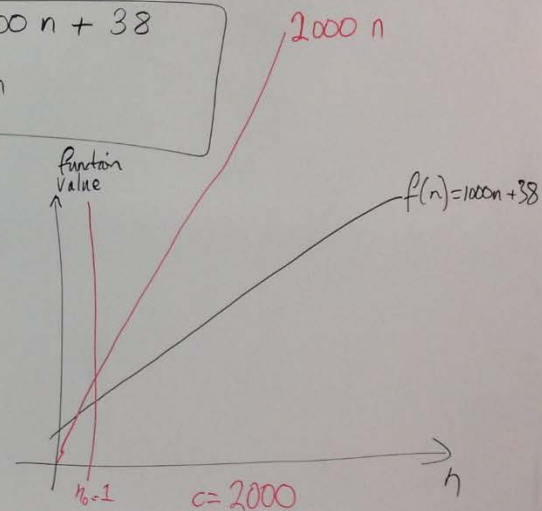 00 n + 38
n
2000 n
function
value
f(n)=1000n+38
n₀=1
c=2000
n